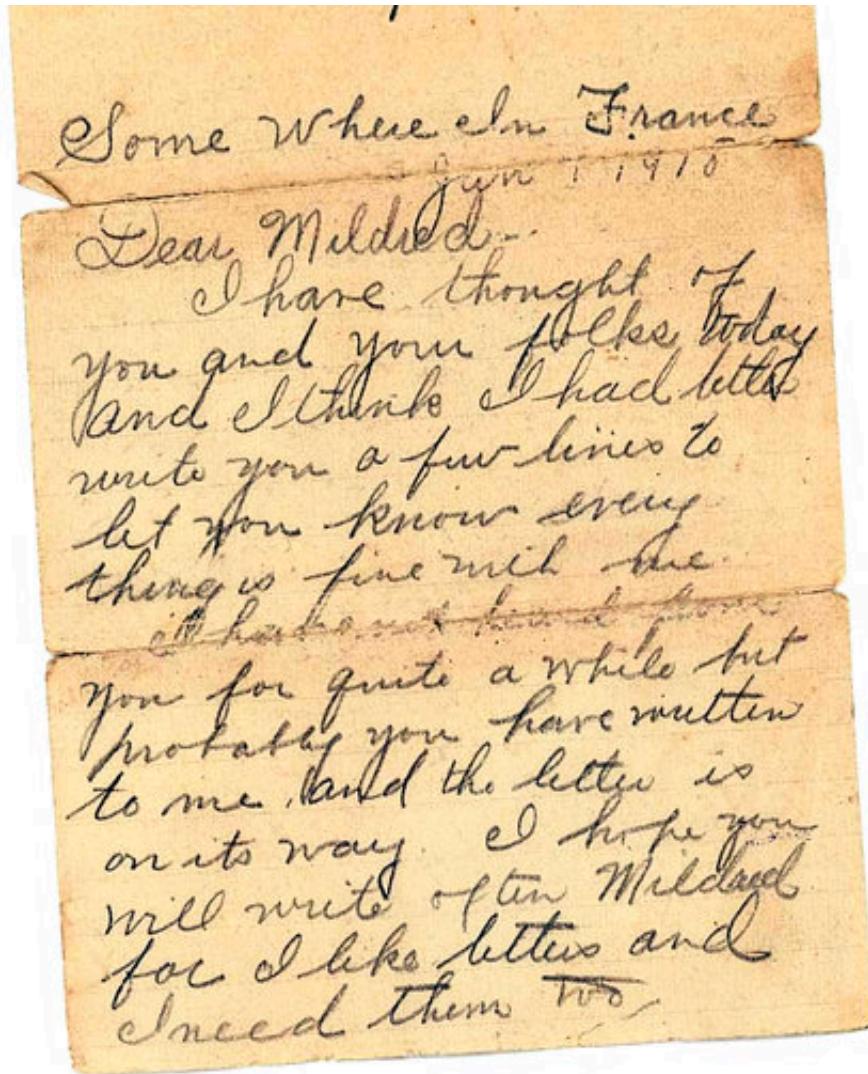 Some Where In France
Jun 1 191
Dear Mildred--
I have thought of
you and your folks today
and I think I had better
write you a few lines to
let you know every
thing is fine with me.
I have not heard from
you for quite a while but
probably you have written
to me, and the letter is
on its way. I hope you
will write often Mildred
for I like letters and
I need them too